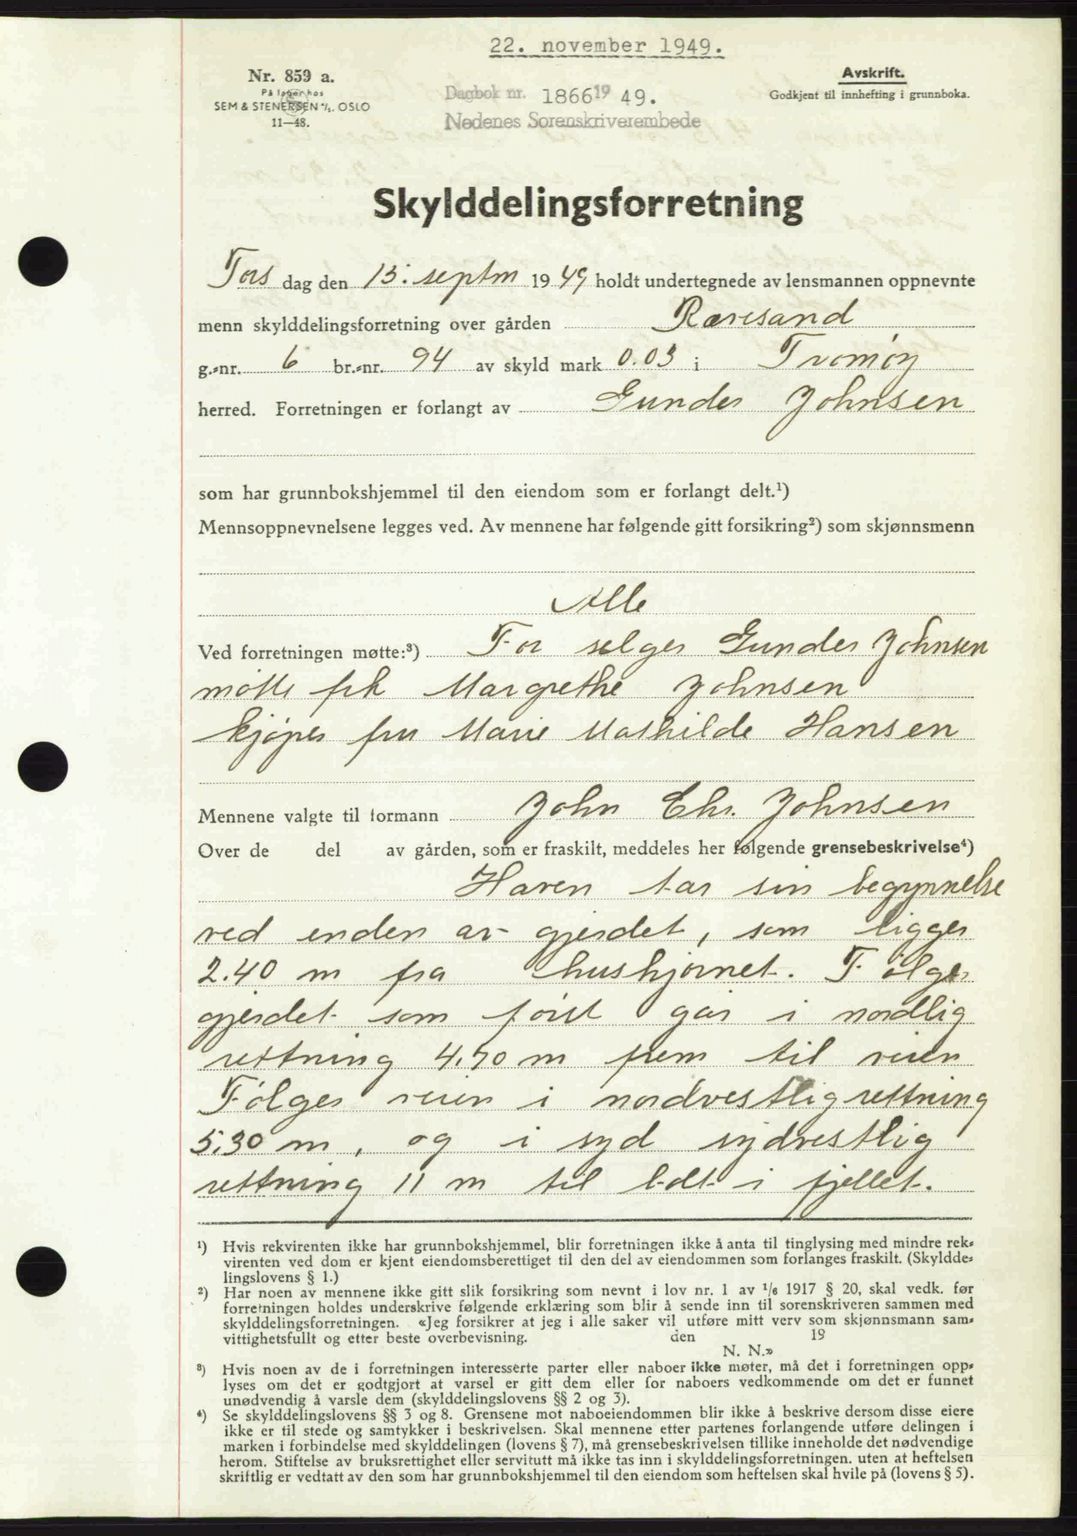 22. november 1949.
Nr. 859 a.
På lager hos
SEM & STENERSEN A/S. OSLO
11—48.
Dagbok nr. 1866 19 49.
Nedenes Sorenskriverembede
Avskrift.
Godkjent til innhefting i grunnboka.
Skylddelingsforretning
Tors dag den 15. septm 1949 holdt undertegnede av lensmannen oppnevnte
menn skylddelingsforretning over gården Rævesand
g.-nr. 6 br.-nr. 94 av skyld mark 0.03 i Tromøy
herred. Forretningen er forlangt av Gunder Johnsen
som har grunnbokshjemmel til den eiendom som er forlangt delt.¹)
Mennsoppnevnelsene legges ved. Av mennene har følgende gitt forsikring²) som skjønnsmenn
Alle
Ved forretningen møtte:³) For selger Gunder Johnsen
møtte frk Margrethe Johnsen
kjøper fru Marie Mathilde Hansen
Mennene valgte til formann John Chr. Johnsen
Over de del av gården, som er fraskilt, meddeles her følgende grensebeskrivelse⁴)
Haven tar sin begynnelse
ved enden av gjerdet, som ligger
2.40 m fra hushjørnet. Følger
gjerdet som først går i nordlig
rettning 4.70 m frem til veien
Følger veien i nordvestlig rettning
5.30 m, og i syd sydvestlig
rettning 11 m til bolt i fjellet.
¹) Hvis rekvirenten ikke har grunnbokshjemmel, blir forretningen ikke å anta til tinglysing med mindre rek-
virenten ved dom er kjent eiendomsberettiget til den del av eiendommen som forlanges fraskilt. (Skyldde-
lingslovens § 1.)
²) Har noen av mennene ikke gitt slik forsikring som nevnt i lov nr. 1 av 1/6 1917 § 20, skal vedk. før
forretningen holdes underskrive følgende erklæring som blir å sende inn til sorenskriveren sammen med
skylddelingsforretningen. «Jeg forsikrer at jeg i alle saker vil utføre mitt verv som skjønnsmann sam-
vittighetsfullt og etter beste overbevisning. den 19
N. N.»
³) Hvis noen av de i forretningen interesserte parter eller naboer ikke møter, må det i forretningen opp-
lyses om det er godtgjort at varsel er gitt dem eller for naboers vedkommende om det er funnet
unødvendig å varsle dem (skylddelingslovens §§ 2 og 3).
⁴) Se skylddelingslovens §§ 3 og 8. Grensene mot naboeiendommen blir ikke å beskrive dersom disse eiere
ikke er til stede og samtykker i beskrivelsen. Skal mennene etter partenes forlangende utføre delingen i
marken i forbindelse med skylddelingen (lovens § 7), må grensebeskrivelsen tillike inneholde det nødvendige
herom. Stiftelse av bruksrettighet eller servitutt må ikke tas inn i skylddelingsforretningen. uten at heftelsen
skriftlig er vedtatt av den som har grunnbokshjemmel til den eiendom som heftelsen skal hvile på (lovens § 5).